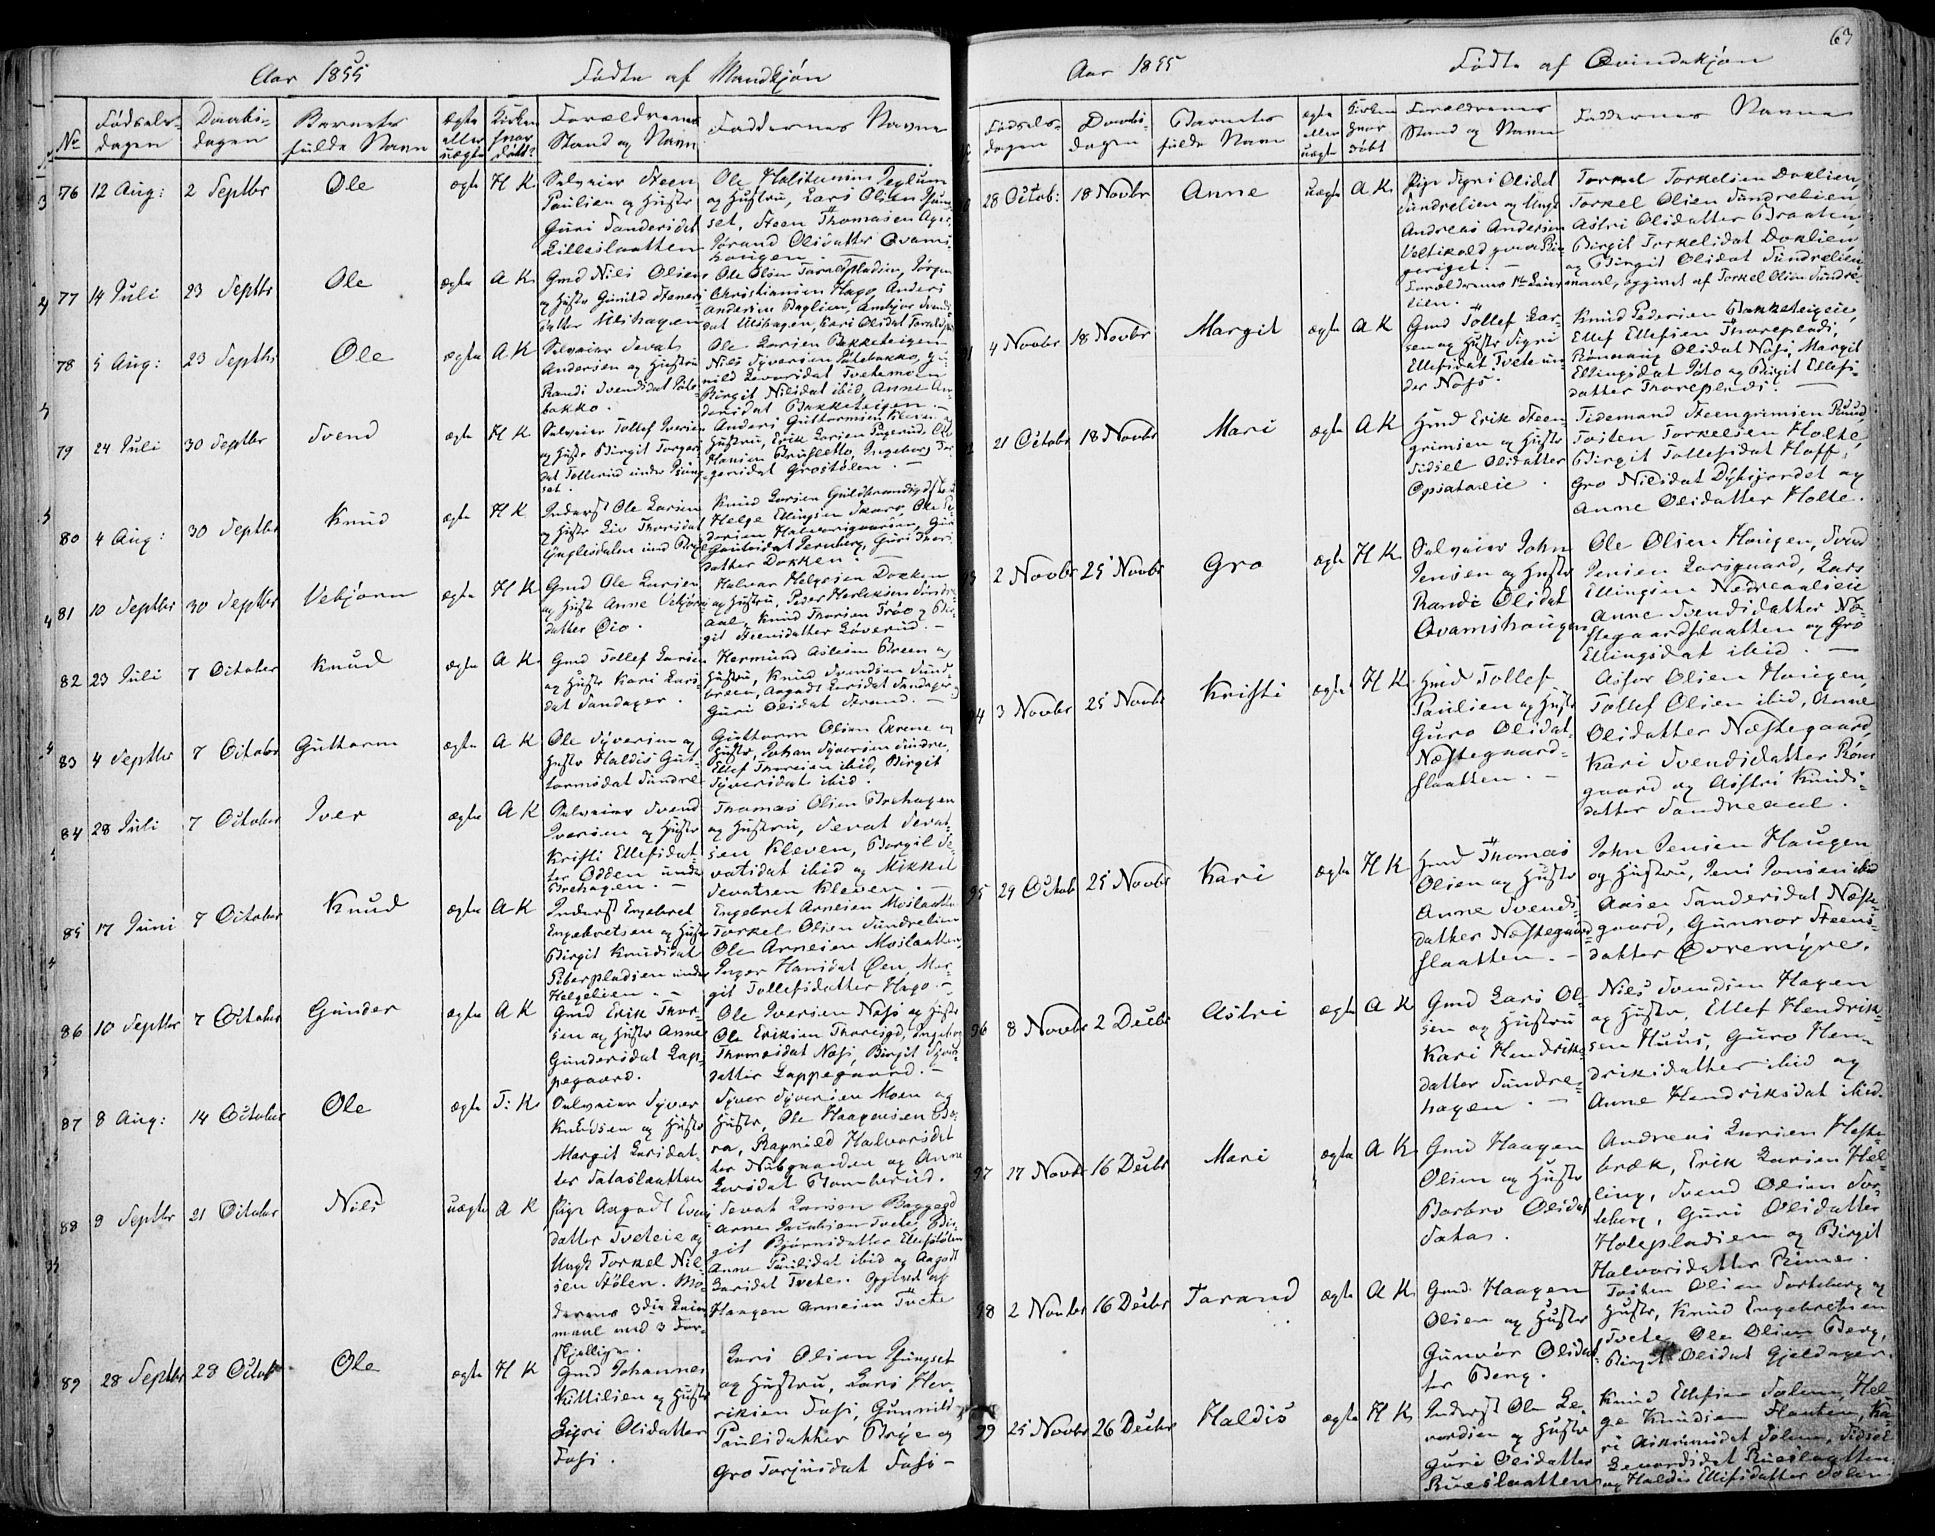 Aar 1855 Fødte af Mandkjøn
No Fødsels-dagen Daabs-dagen Barnets fulde Navn ægte eller uægte Kirken hvor døbt? Forældrenes Stand og Navn Faddernes Navne
76 12 Aug: 2 Septbr Ole ægte H K Selveier Steen
Paulsen og Hustr
Guri Sandersdat
Lilleslaatten
og Hustru, Lars Olsen
set, Steen Thomasen
Jørand Olsdatter
haugen. —
77 14 Juli 23 Septbr Ole ægte A K Gmd Nils Olsen
og Hustr Gunild
datter Ulshagen
Ole Olsen
Christiansen Hago, Anders
Andersen
dat Ulshagen, Kari Olsdat
78 5 Aug: 23 Septbr Ole ægte A K Selveier Sevat
Andersen og Hustru
Randi Svendsdat
bakko.
Ole Larsen Bakketeigen
Nils Syversen
Birgit Nilsdat ibid, Anne An-
dersdat Bakketeigen. —
79 24 Juli 30 Septbr Svend ægte H K Selveier Tollef Iversen
og Hustr Birgit
dat Tollerud under
set.
Anders Guttormsen
Hustru, Erik Larsen
Hansen Brusletto, Ingeborg
Grøstølen. —
80 4 Aug: 30 Septbr Knud ægte H K Inderst Ole Larsen
og Hustr Liv Thorsdat
Knud Larsen
Helge Ellingsen Skaro, Ole
datter Dokken. —
81 10 Septbr 30 Septbr Vebjørn ægte H K Gmd Ole Larsen
og Hustr Anne
datter Øio.
Halvor Helgesen Dokken
og Hustru, Peder Herleiksen
aal, Knud Thorsen Trøo og Bir-
git Steensdatter Løverud. —
82 23 Juli 7 October Knud ægte A K Gmd Tollef Larsen
og Hustr Kari Lars-
dat Sandager.
Hermund Aslesen Breen og
Hustru, Knud Svendsen
breen, Aagodt Larsdat Sandager
Guri Olsdat Strand. —
83 4 Septbr 7 Octobr Guttorm ægte A K Ole Syversen og
Hustr Haldis Gut-
tormsdat Sundre
Guttorm Olsen Ekrene og
Hustr, Johan Syversen Sundre,
Ellef Thoresen ibid, Birgit
Syversdat ibid.
84 28 Juli 7 October Iver ægte A K Selveier Svend
Iversen og Hustr
Kristi Ellefsdat-
ter Odden under
Brehagen. —
Thomas Olsen Brehagen
og Hustru, Sevat Sevat-
sen Kleven, Borgil Se-
vatsdat ibid og Mikkel
Sevatsen Kleven. —
85 17 Juni 7 October Knud ægte A K Inderst Engebret
Engebretsen og Hustr
Birgit Knudsdat
under
Helgelien. —
Engebret Arnesen Moslaatten
Torkel Olsen Sundrelien
Ole Arnesen Moslaatten,
Inger Hansdat Øen, Mar-
git Tollefsdatter Hago. —
86 10 Septbr 7 October Gunder ægte A K Gmd Erik Thor-
sen og Hustr Anne
Gundersdat Lap-
pegaard.
Ole Iversen Næss og Hustr
Ole Eriksen
Thomasdat Næss, Birgit
datter Lappegaard. —
87 8 Aug: 14 October Ole ægte T: K Selveier Syver
Knudsen og Hustr
Margit Larsdat-
ter Sataslaatten
Syver Syversen Moen og
Hustr, Ole Haagensen Bø-
ra, Ragnild Halvorsdat
ter Nubgaarden og Anne
Larsdat
88 9 Septbr 21 October Nils uægte A K Pige Aagodt
datter Tveteie og
Ungk Torkel Nil-
sen Stølen. Mo-
derens 3die Leier
maal med 3 for-
skjellige.
Sevat Larsen
Arne Jacobsen Tveto, Bir-
git Bjørnsdatter
Anne Paulsdat ibid og Aagodt
Larsdat Tveto. Opgivet af
Haagen Arnesen Tveto
89 28 Septbr 28 Octobr Ole ægte H K Gmd Johannes
Kittilsen og Hustr
Sigri Olsdatter
Fossi.
Lars Olsen
og Hustru, Lars Hen-
riksen Fossi, Gunnild
Paulsdatter Brye og
Gro Torjusdat Fossi —
63
Aar 1855 Fødte af Qvindekjøn
Fødsels-dagen Daabs-dagen Barnets fulde Navn ægte eller uægte Kirken hvor døbt Forældrenes Stand og Navn Faddernes Navne
28 Octob: 18 Novbr Anne uægte A K Pige Sigri Olsdat
Sundrelien og Ungk
Andreas Andersen
Forældrenes 1ste Leiermaal, opgivet af Torkel Olsen Sundre-
lien.
Torkel Torkelsen Doklien,
Torkel Olsen Sundrelien
Astri Olsdatter Braaten,
Birgit Torkelsdat Doklien
og Birgit Olsdat Sundrelien
4 Novbr 18 Novbr Margit ægte A K Gmd Tollef Lar-
sen og Hustr Sigri
Ellefsdat Tveto un-
der Næss.
Knud Pedersen Bakketeigeie,
Ellef Ellefsen
Rønnaug Olsdat Næss, Margit
Ellingsdat og Birgit Ellefs-
datter
21 Octobr 18 Novbr Mari ægte A K Hmd Erik Steen-
grimsen og Hustr
Sidsel Olsdatter
Opsataeie.
Tidemand Steengrimsen Ruud,
Tosten Torkelsen Holte,
Birgit Tollefsdat Hoff,
Gro Nilsdat og
Anne Olsdatter Holte.
2 Novbr 25 Novbr Gro ægte H K Selveier John
Jensen og Hustr
Randi Olsdat
Qvamshaugen
Ole Olsen Haugen, Svend
Jensen Larsgaard, Lars
Ellingsen Nedreaalseie
Anne Svendsdatter Næ-
stegaardslaatten og Gro
Ellingsdat ibid. —
94 3 Novbr 25 Novbr Kristi ægte H K Hmd Tollef
Paulsen og Hustr
Guro Olsdat
Næstegaard-
slaatten. —
Asser Olsen Haugen,
Tollef Olsen ibid, Anne
Olsdatter Næstegaard,
Kari Svendsdatter
gaard og Astri Knuds-
datter Sandreaal.
95 29 Octob 25 Novbr Kari ægte H K Hmd Thomas
Olsen og Hustr
Anne Svends-
datter Næstegaard
slaatten. —
John Jensen Haugen
og Hustru, Jens Jonsen ibid
Sandersdat Næste-
gaard, Gunnor Steens-
datter Øvremyre.
96 8 Novbr 2 Decbr Astri ægte A K Gmd Lars Ol-
sen og Hustru
Kari Hendriks-
datter Sundre-
hagen. —
Nils Svendsen Hagen
og Hustr, Ellef Hendrik-
sen Huus, Guro Hen-
driksdatter ibid og
Anne Hendriksdat ibid.
97 17 Novbr 16 Decbr Mari ægte A K Gmd Haagen
Olsen og Hustr
Barbro Olsdat
Satas.
Andreas Larsen
bræk, Erik Larsen Hel-
ling, Svend Olsen Tor-
teberg, Guri Olsdatter
Holepladsen og Birgit
Halvorsdatter Rime.
98 2 Novbr 16 Decbr Jorand ægte A K Gmd Haagen
Olsen og Hustr
Gunvor Olsdat-
ter Berg.
Tosten Olsen Torteberg og
Hustr, Knud Engebretsen
Tveto, Ole Olsen Berg,
Birgit Olsdat Gjeldager.
99 25 Novbr 26 Decbr Haldis ægte H K Inderst Ole Le-
vordsen og Hustr
Guri Olsdatter
Rueslaatten
Knud Ellefsen Solem, Hel-
ge Knudsen
Solem, Sidsel
Levordsdat Rueslaatten
og Haldis Ellefsdatter Solem